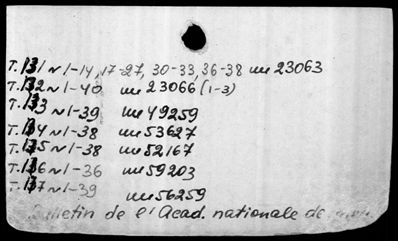 Т. 131 N 1-14, 17-27, 30-33, 36-38 ин 23063
Т. 132 N 1-40 ин 23066 (1-3)
Т. 133 N 1-39 ин 49259
Т. 134 N 1-38 ин 53627
Т. 135 N 1-38 ин 52167
Т. 136 N 1-36 ин 59203
Т. 137 N 1-39 ин 56259
Bulletin de l'Acad. nationale de